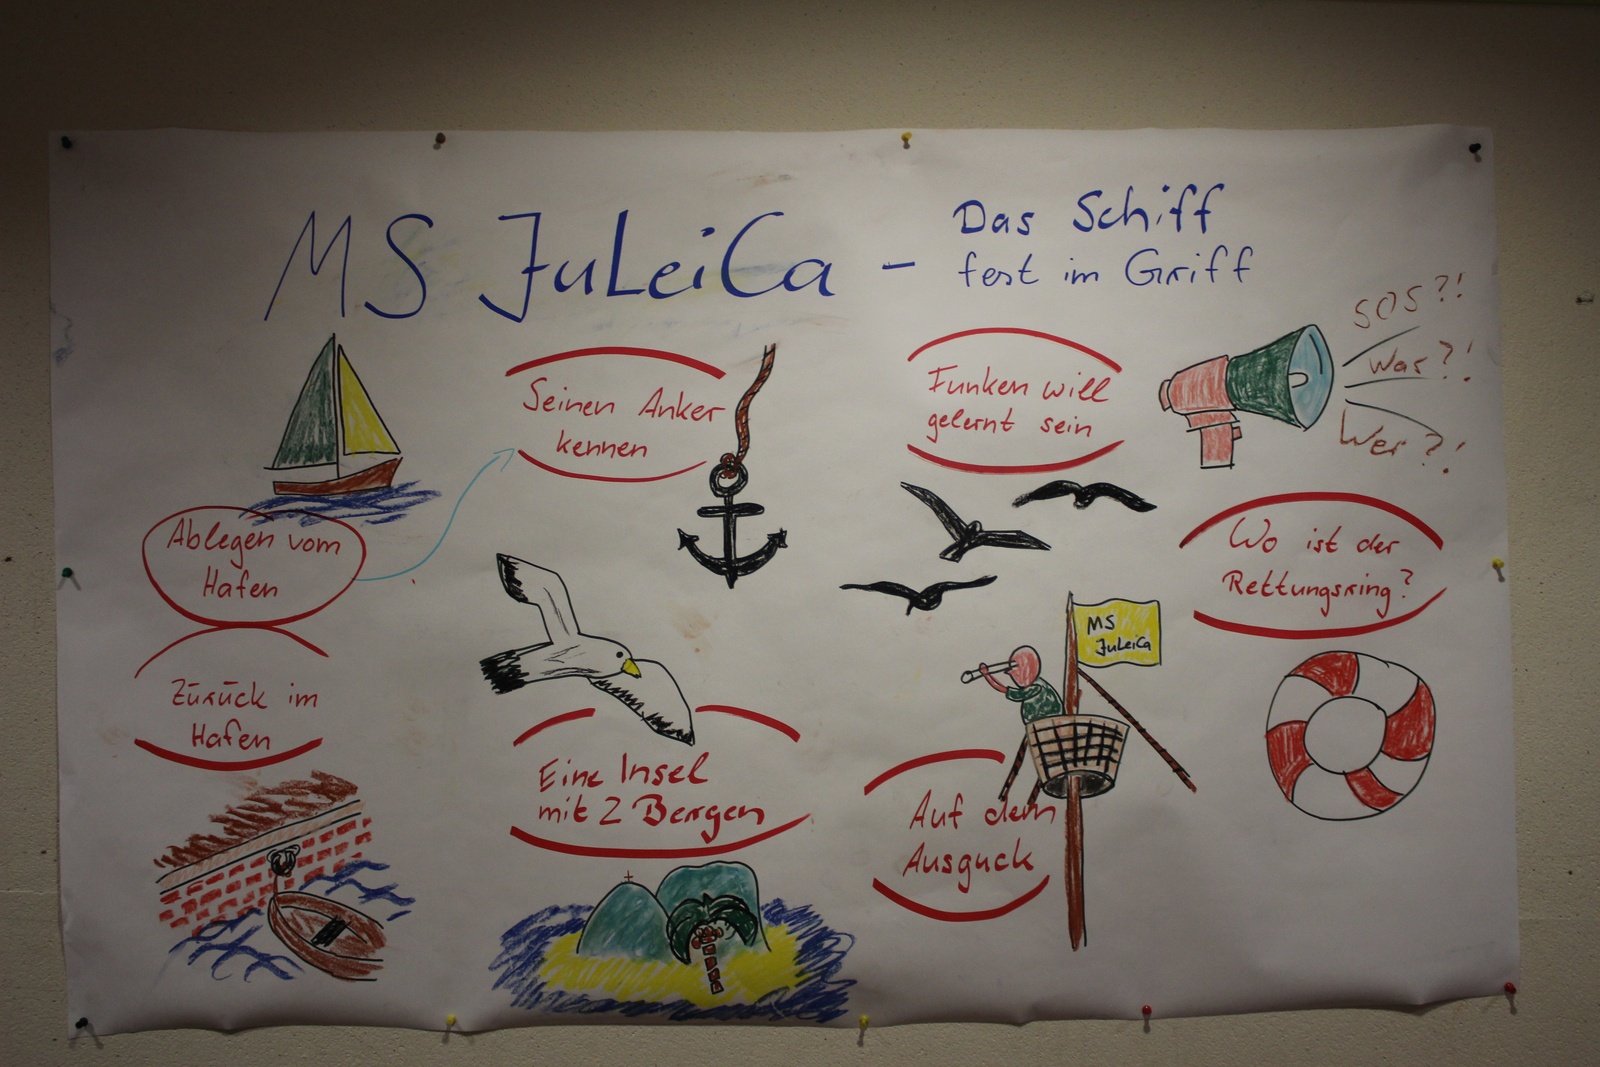 MS JuLeiCa –
Das Schiff
fest im Griff
Seinen Anker
kennen
Funken will
gelernt sein
SOS?!
Was?!
Wer?!
Ablegen vom
Hafen
Wo ist der
Rettungsring?
MS
JuLeiCa
Zurück im
Hafen
Eine Insel
mit 2 Bergen
Auf dem
Ausguck